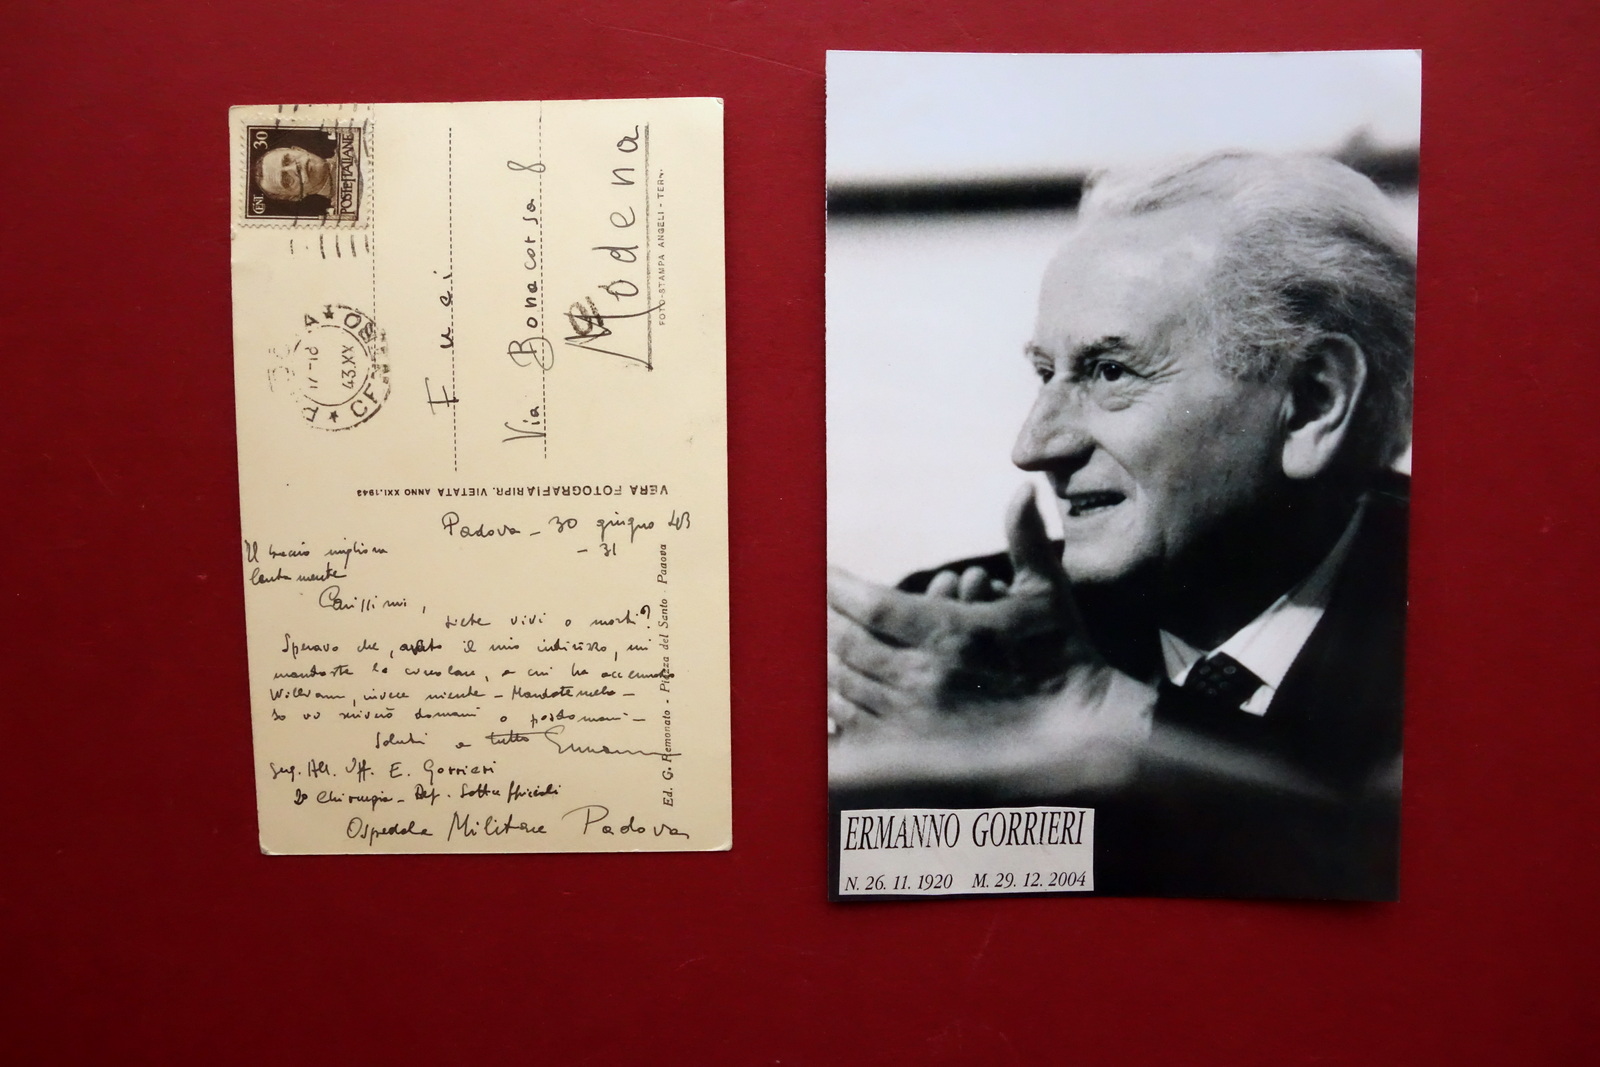 CENT. 30
POSTE ITALIANE
17-18
43.XX
Fuci
Via Bonacorsa 8
Modena
FOTO-STAMPA ANGELI - TERNI
VERA FOTOGRAFIA RIPR. VIETATA ANNO XXI.1943
Padova - 30 giugno 43
- 31
Il braccio migliora
lentamente
Carissimi,
siete vivi o morti?
Speravo che, avuto il mio indirizzo, mi
mandaste la circolare, a cui ha accennato
William, invece niente - Mandatemela -
Io vi scriverò domani o posdomani -
Saluti a tutto Ermanno
Serg. All. Uff. E. Gorrieri
2° Chirurgia - Rep. Sottufficiali
Ospedale Militare Padova
Ed. G. Remonato - Piazza del Santo - Padova
ERMANNO GORRIERI
N. 26. 11. 1920 M. 29. 12. 2004